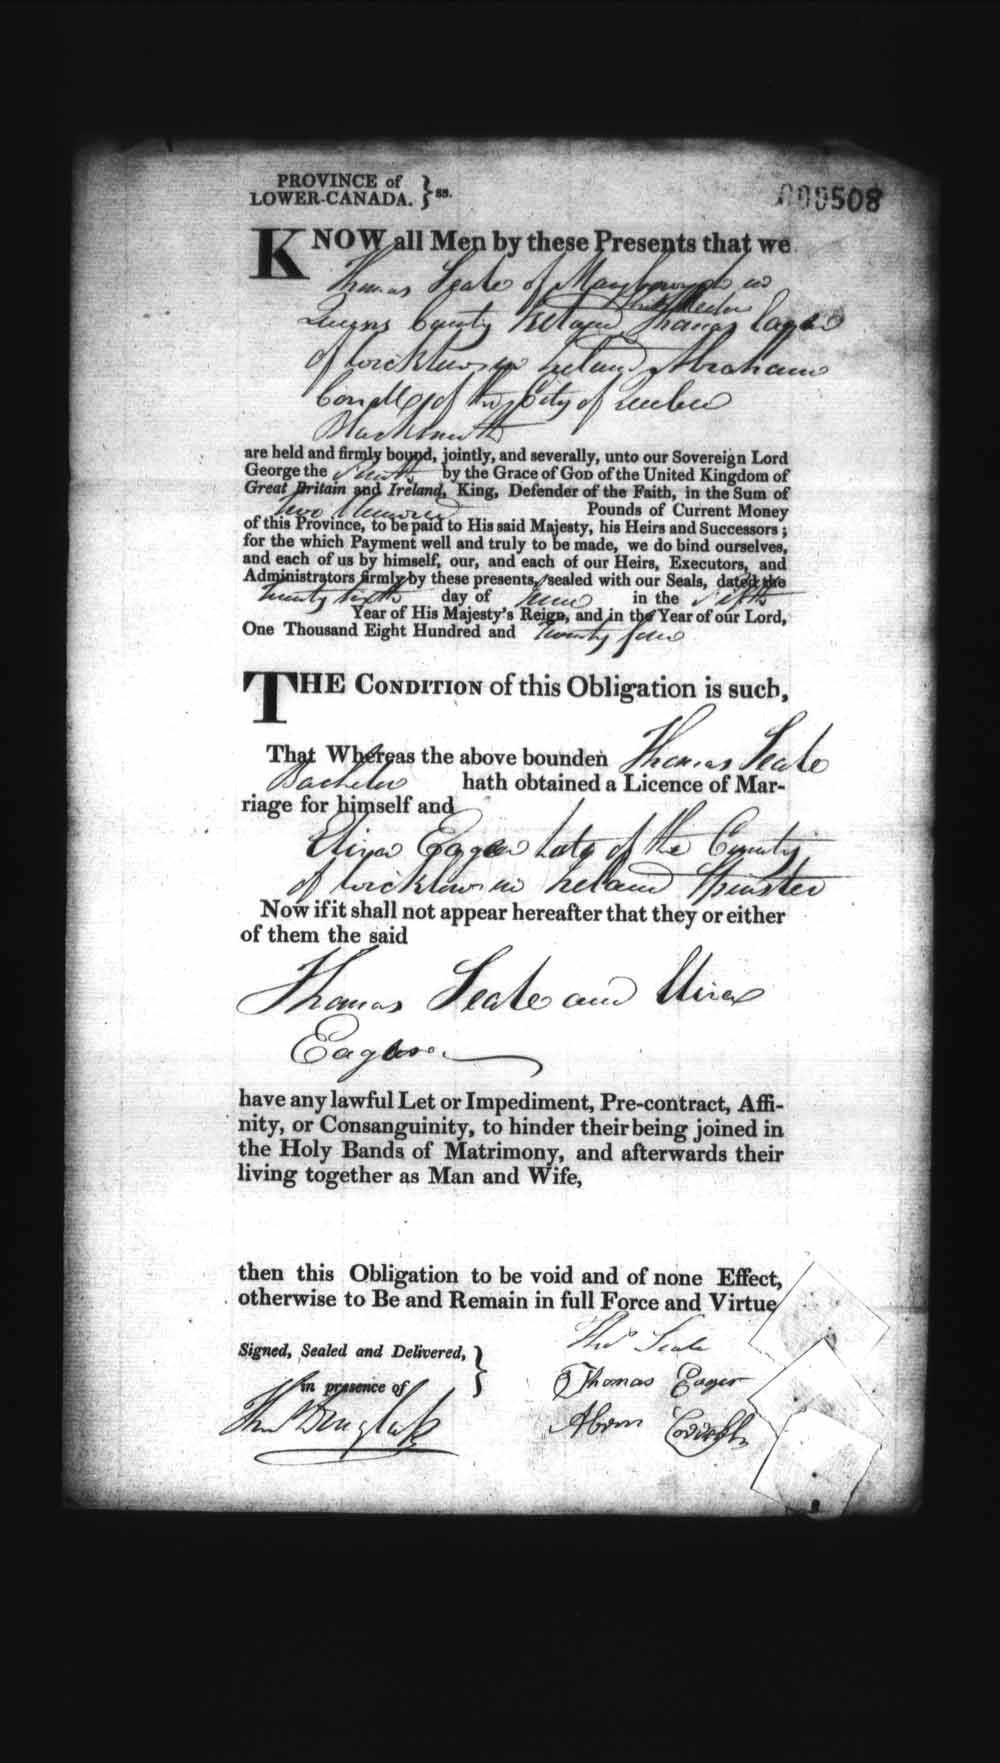 PROVINCE of
LOWER-CANADA. } ss.
000508
KNOW all Men by these Presents that we
Thomas Seale of Maryborough in
Queens County Ireland, Thomas Eagar
of Wicklow in Ireland Abraham
of the City of Quebec
Blacksmith
are held and firmly bound, jointly, and severally, unto our Sovereign Lord
George the Fourth by the Grace of GOD of the United Kingdom of
Great Britain and Ireland, King, Defender of the Faith, in the Sum of
Two Hundred Pounds of Current Money
of this Province, to be paid to His said Majesty, his Heirs and Successors ;
for the which Payment well and truly to be made, we do bind ourselves,
and each of us by himself, our, and each of our Heirs, Executors, and
Administrators firmly by these presents, sealed with our Seals, dated the
twenty sixth day of June in the Fifth
Year of His Majesty's Reign, and in the Year of our Lord,
One Thousand Eight Hundred and Twenty four
THE CONDITION of this Obligation is such,
That Whereas the above bounden Thomas Seale
Bachelor hath obtained a Licence of Mar-
riage for himself and
Eliza Eagar late of the County
of Wicklow in Ireland Spinster
Now if it shall not appear hereafter that they or either
of them the said
Thomas Seale and Eliza
Eagar
have any lawful Let or Impediment, Pre-contract, Affi-
nity, or Consanguinity, to hinder their being joined in
the Holy Bands of Matrimony, and afterwards their
living together as Man and Wife,
then this Obligation to be void and of none Effect,
otherwise to Be and Remain in full Force and Virtue
Signed, Sealed and Delivered, }
in presence of
Thos Seale
Thomas Eager
Abrm